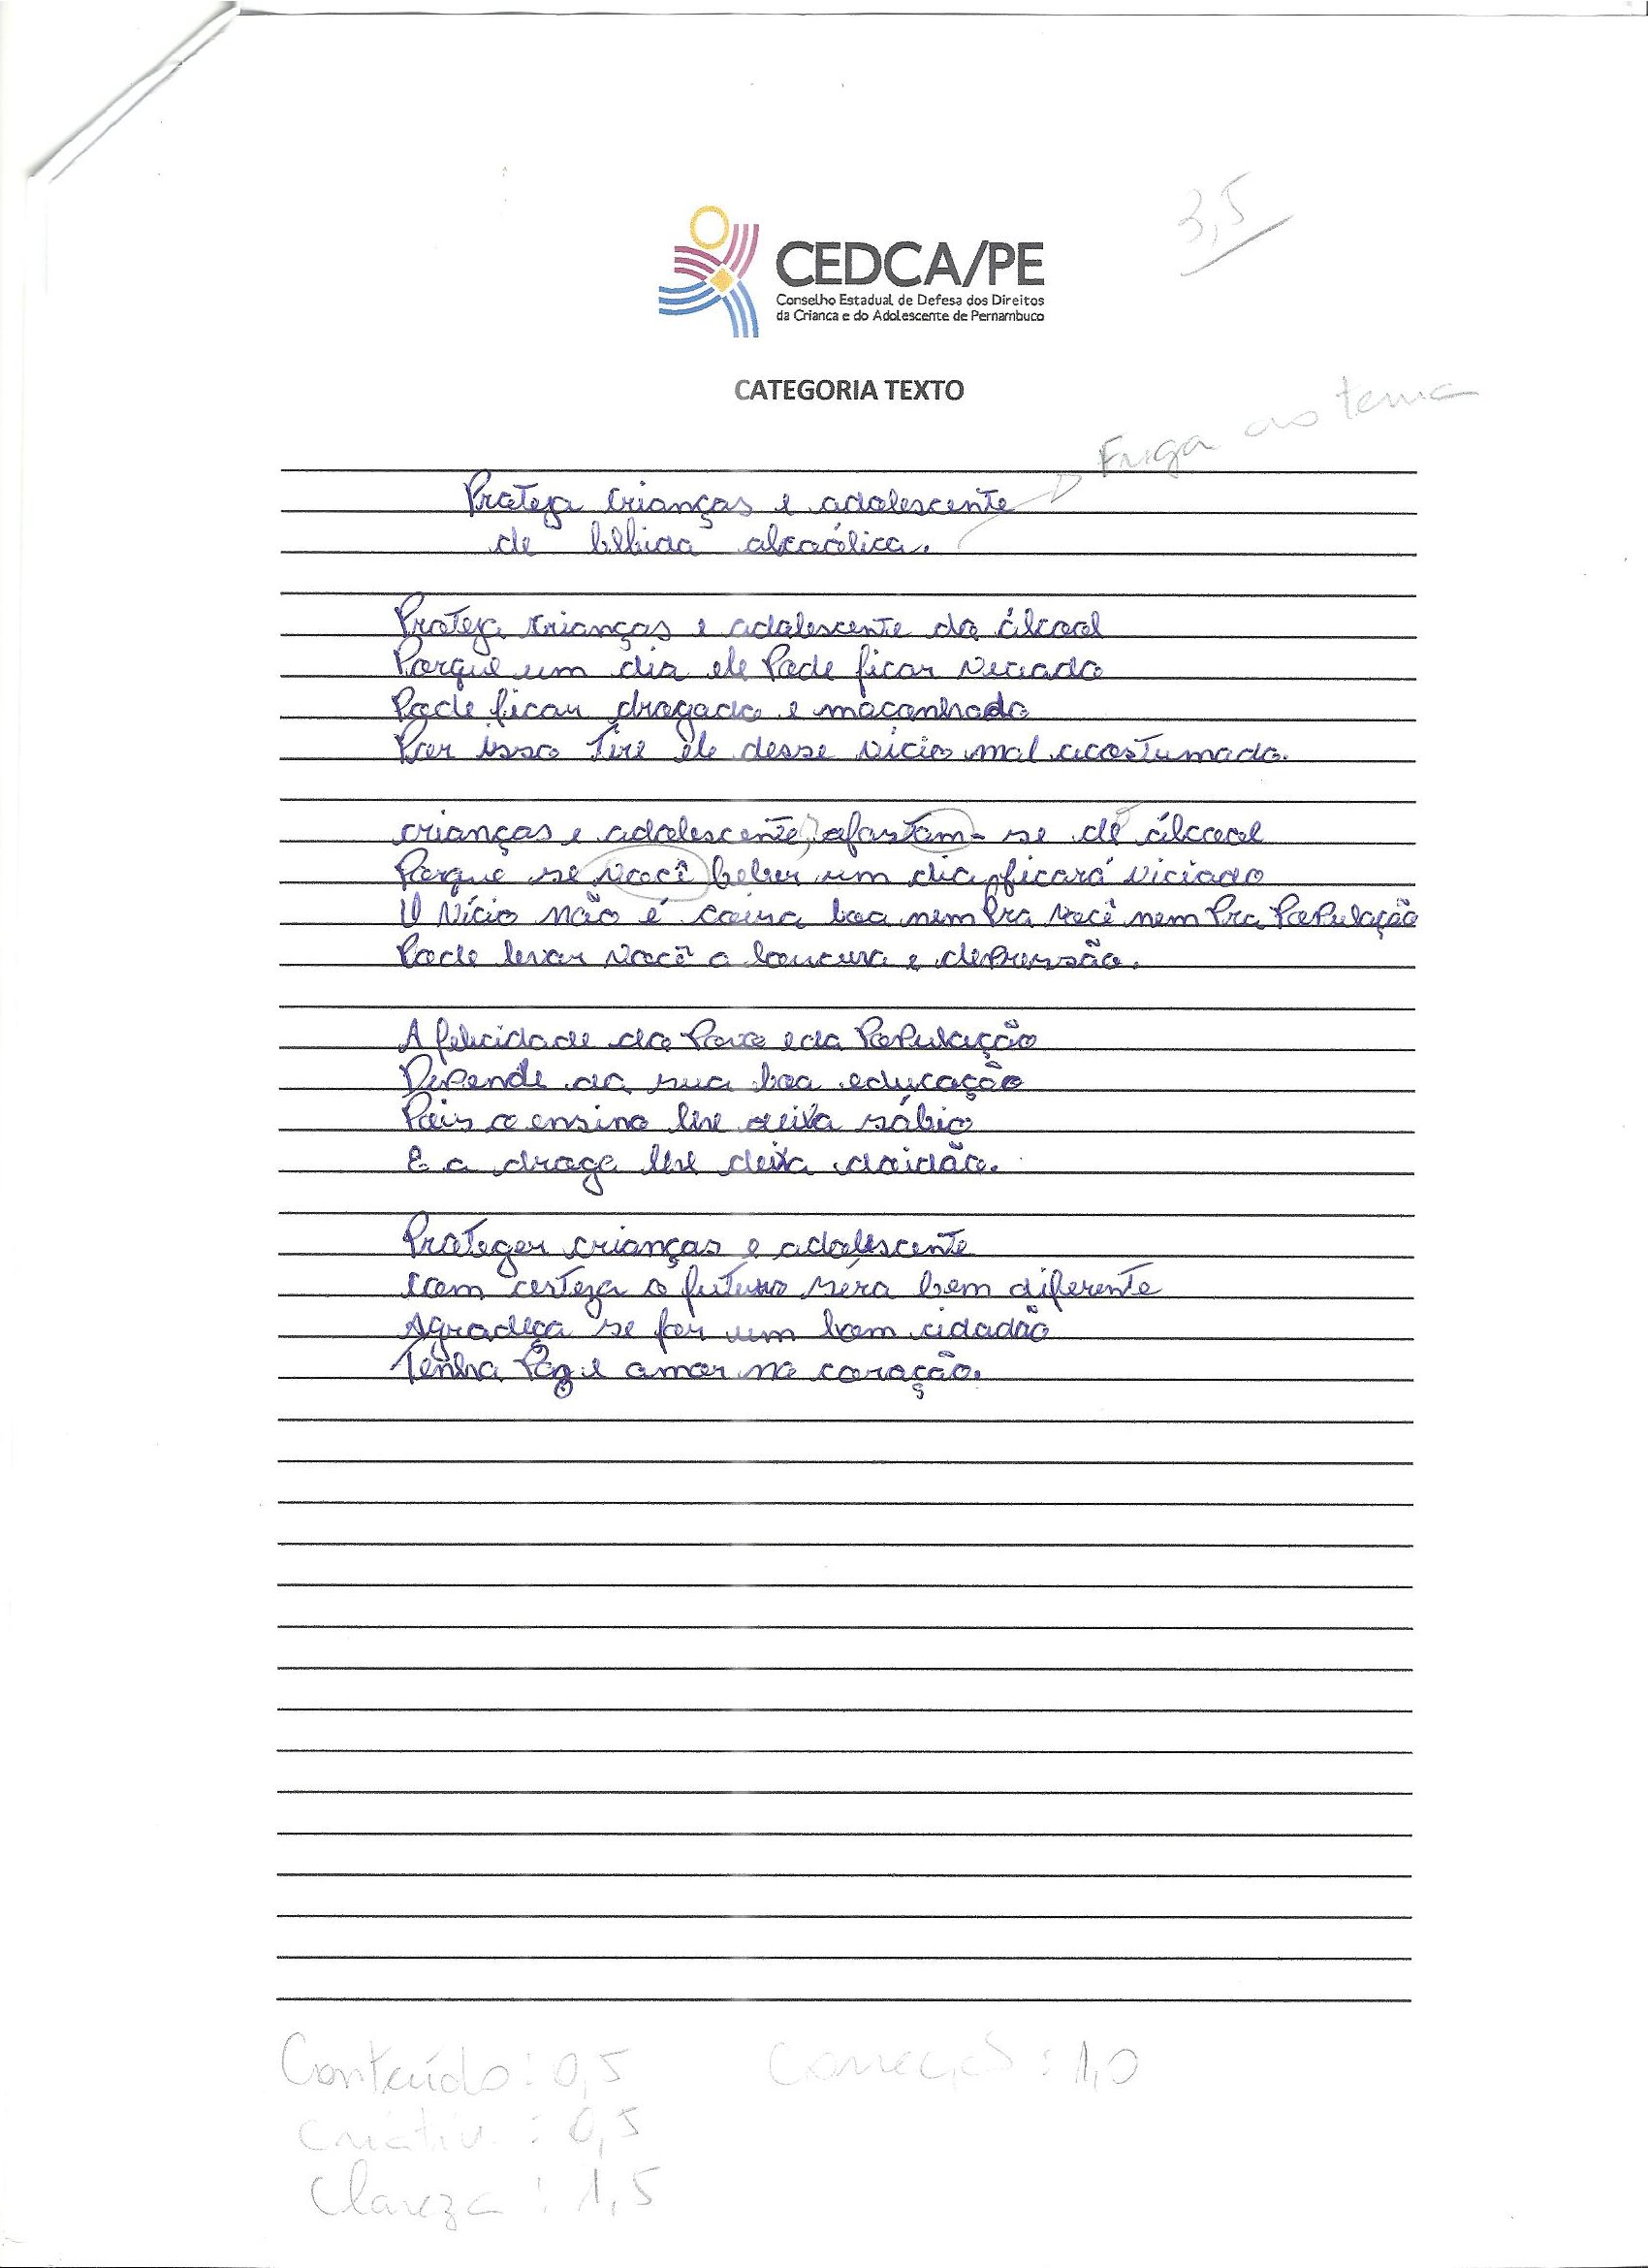 3,5
CEDCA/PE
Conselho Estadual de Defesa dos Direitos
da Crianca e do Adolescente de Pernambuco
CATEGORIA TEXTO
Fuga ao tema
Proteja Crianças e adolescente
de bebida alcoólica.
Proteja crianças e adolescente do álcool
Porque um dia ele Pode ficar viciado
Pode ficar drogado e maconhado
Por isso Tire ele desse vício mal acostumado.
crianças e adolescente, afastam-se de álcool
Porque se você beber um dia, ficará viciado
O Vício não é coisa boa nem Pra você nem Pra População
Pode levar você a loucura e depressão.
A felicidade do Povo e da População
Depende da sua boa educação
Pois o ensino lhe deixa sábio
E a droga lhe deixa doidão.
Proteger crianças e adolescente
com certeza o futuro séra bem diferente
Agradeça se for um bom cidadão
Tenha Paz e amor no coração.
Conteúdo: 0,5 Correção: 1,0
Criativ.: 0,5
Clareza: 1,5